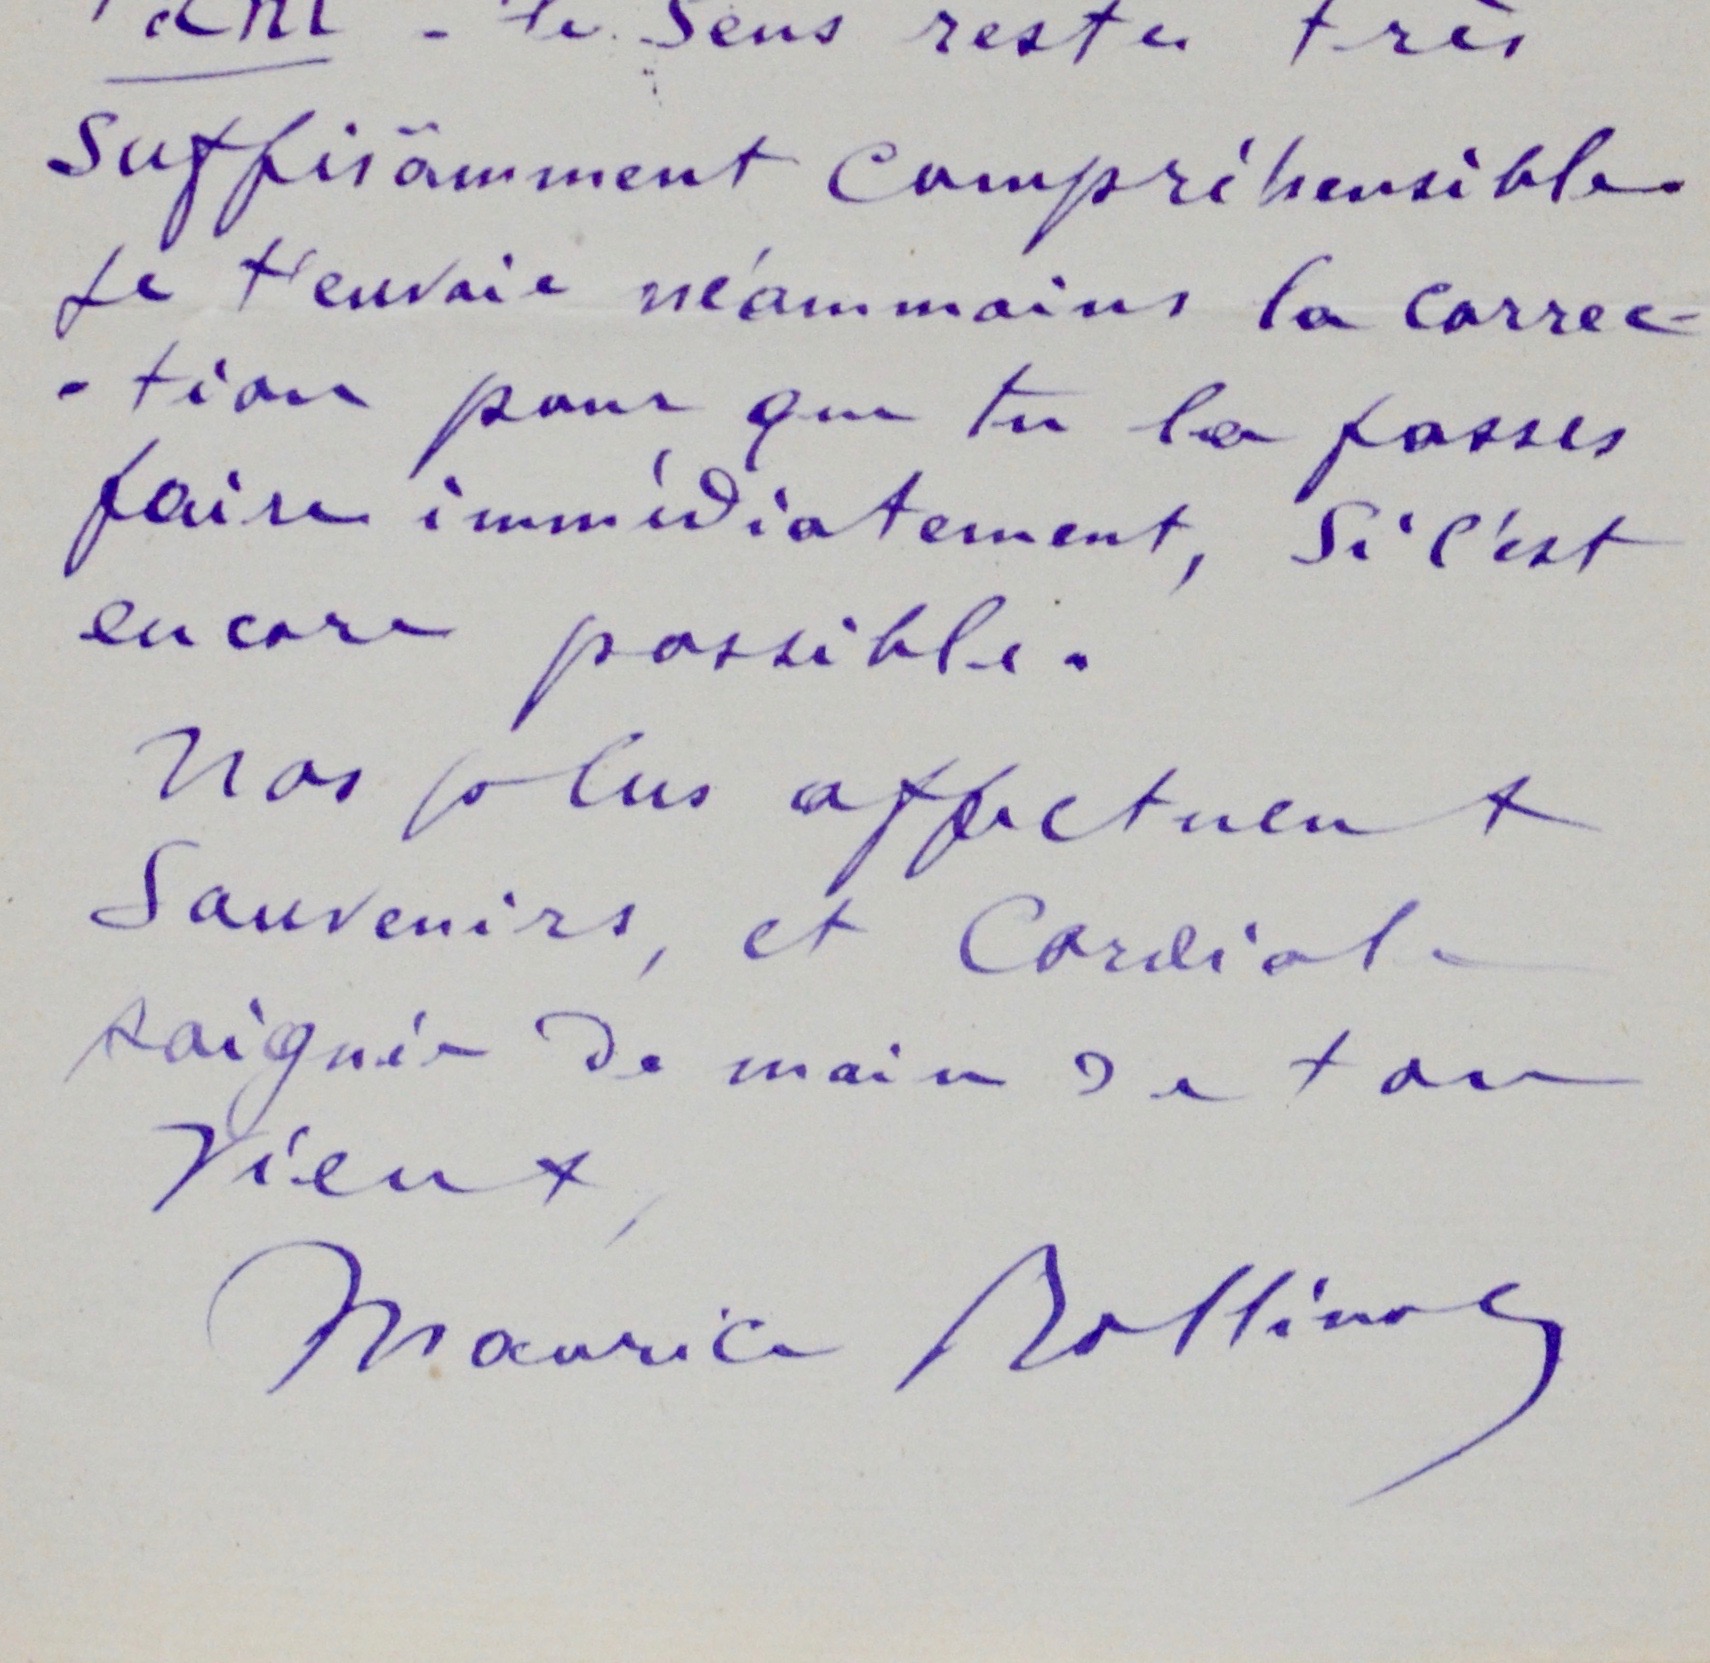 - le sens reste très
suffisamment compréhensible.
Je t'envoie néammoins la correc-
-tion pour que tu la fasses
faire immédiatement, si c'est
encore possible.
Nos plus affectueux
Souvenirs, et Cordiale
poignée de main de ton
Vieux,
Maurice Rollinat